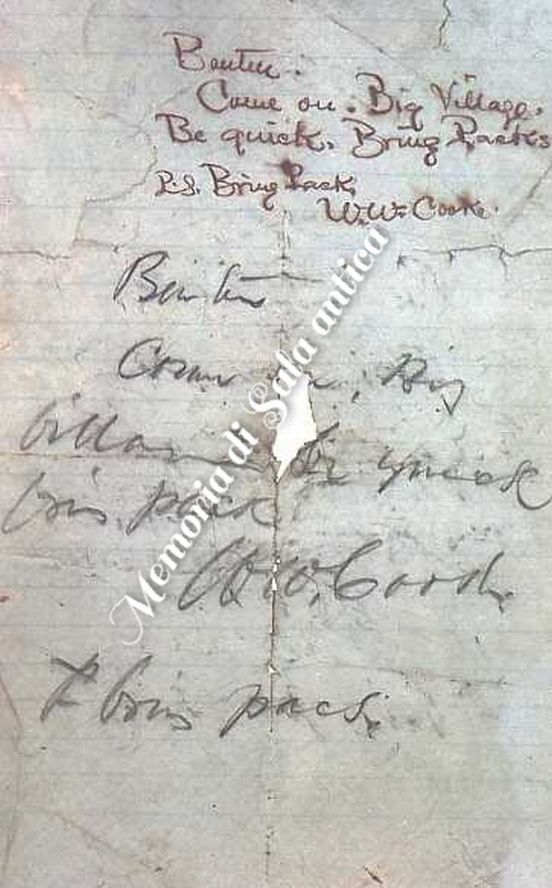 Benteen.
Come on. Big Village.
Be quick. Bring Packs
P.S. Bring Pack.
W.W. Cooke.
Benteen
Come on. Big
Village be quick
bring packs
W.W. Cooke
P bring pacs.
Memoria di Sala antica